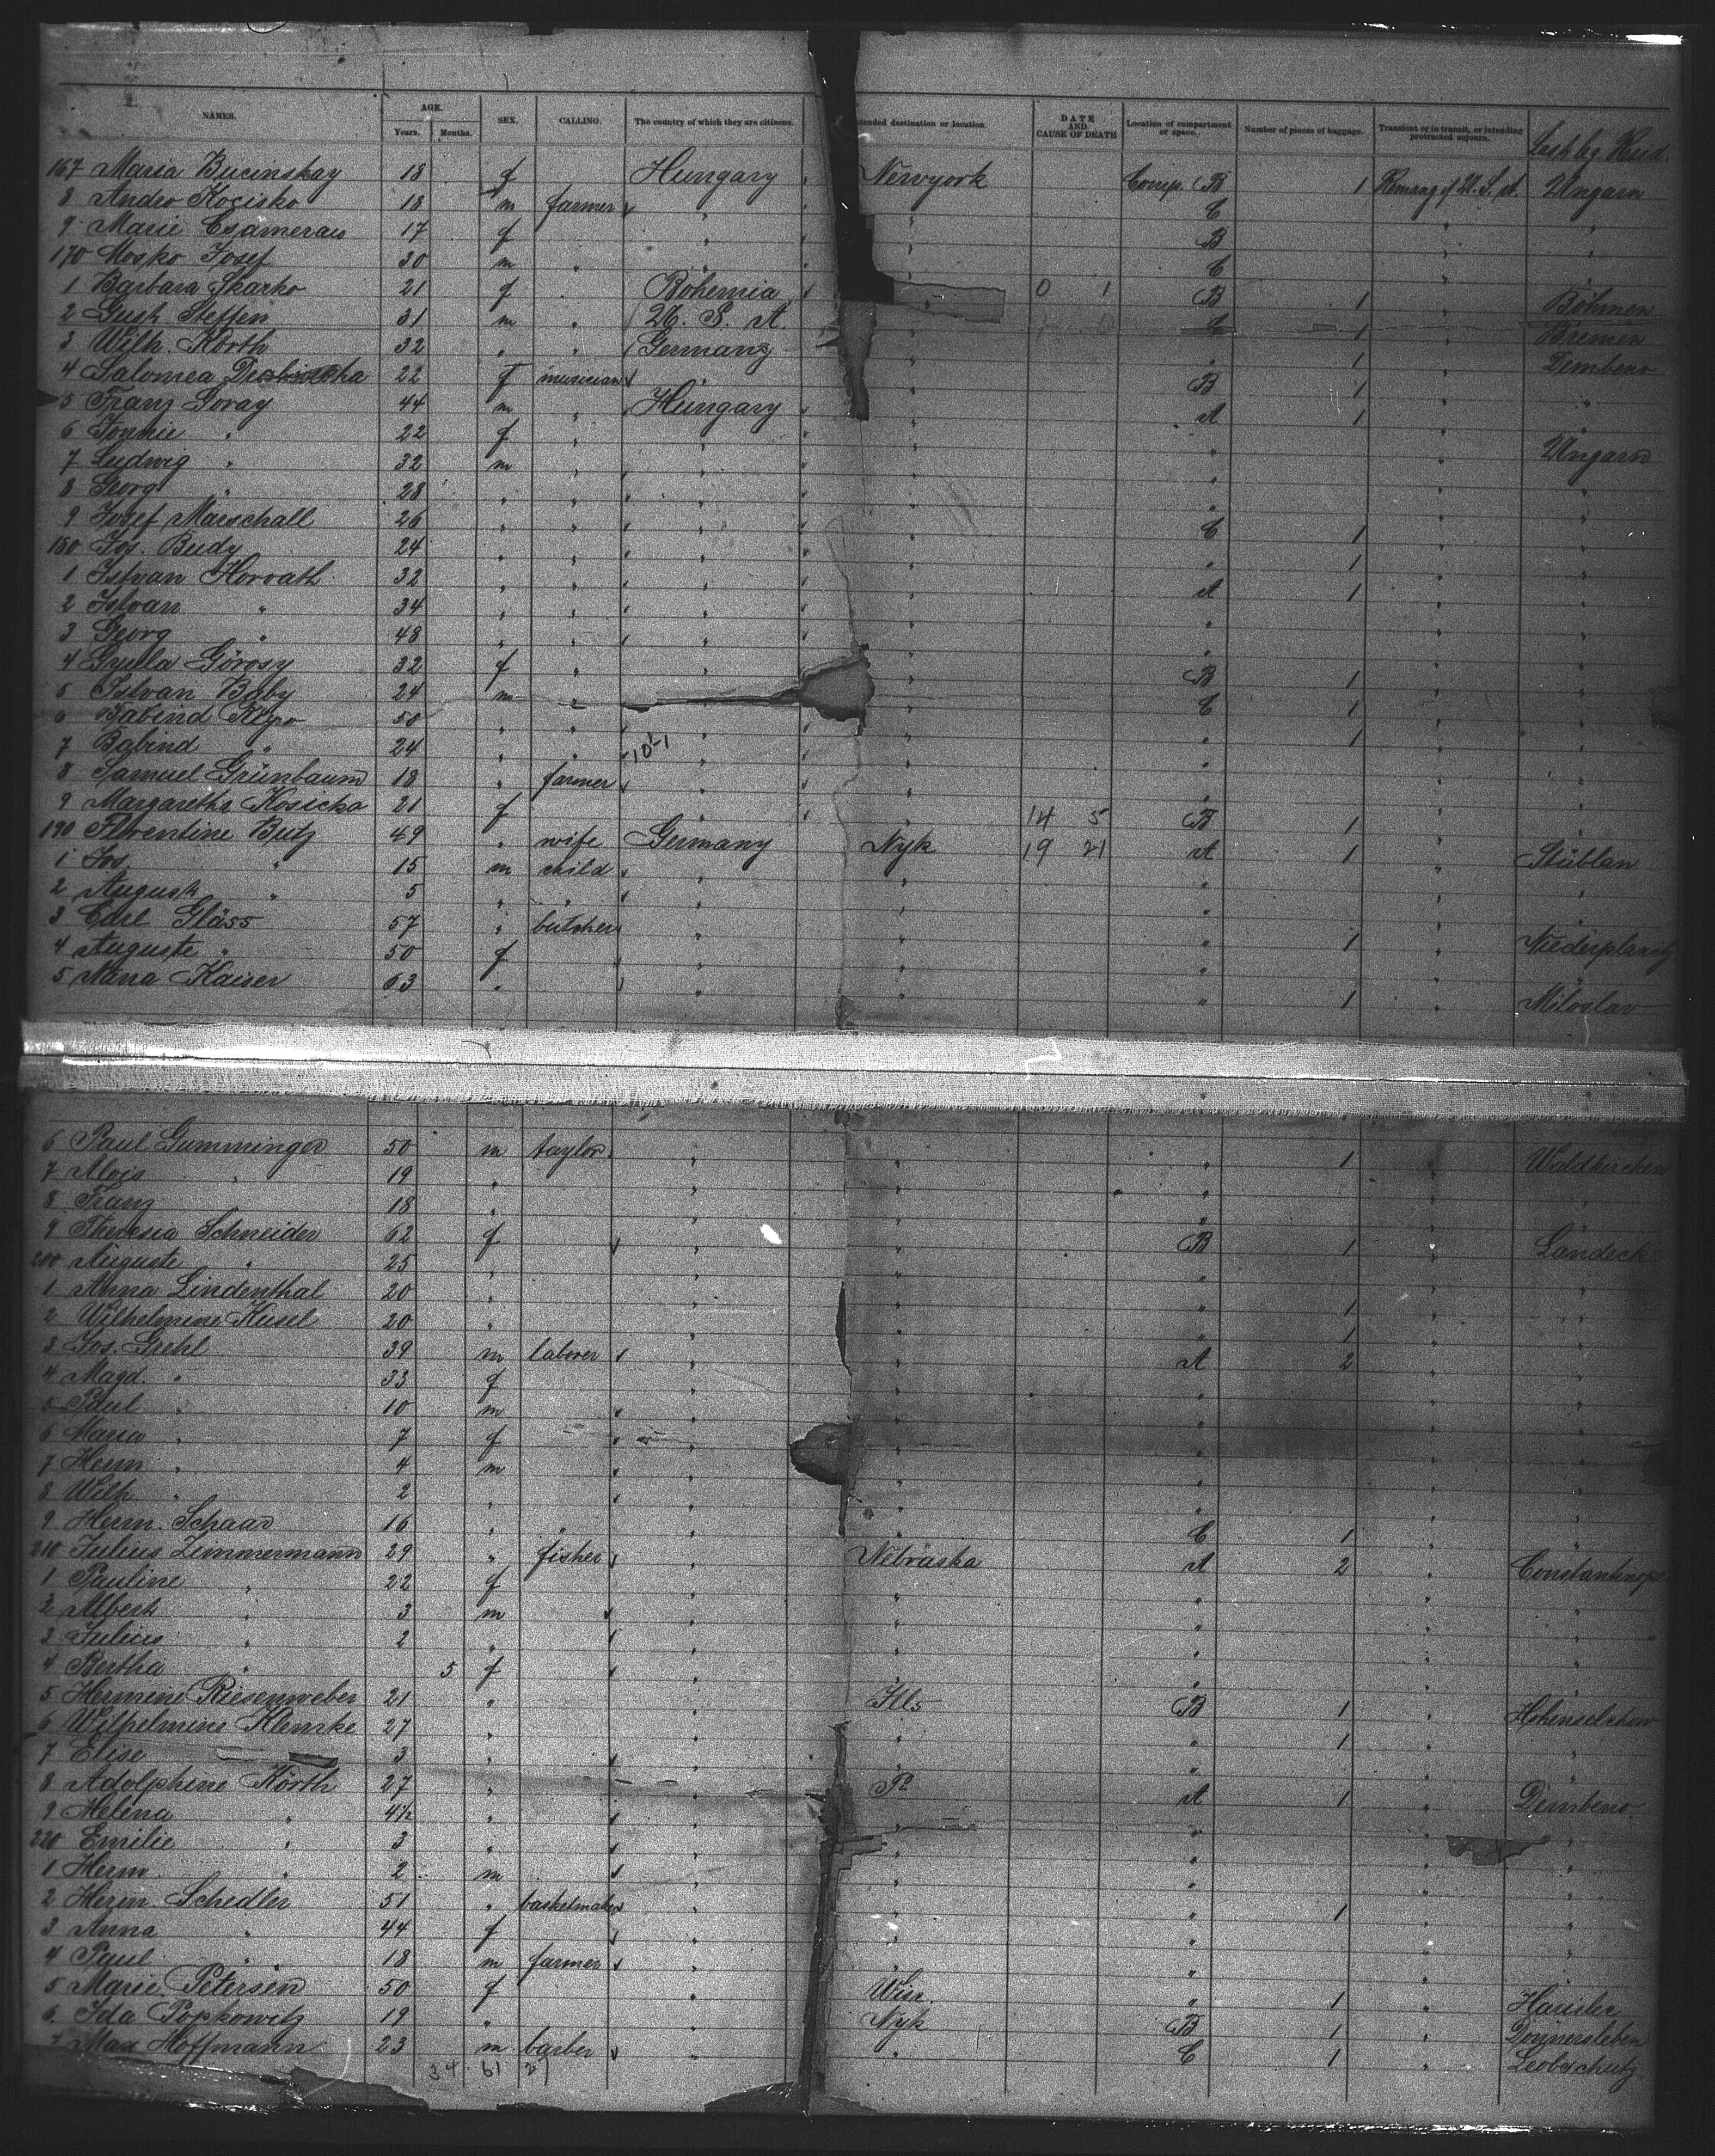 NAMES. AGE. Years. Months. SEX. CALLING. The country of which they are citizens. Intended destination or location. DATE AND CAUSE OF DEATH Location of compartment or space. Number of pieces of baggage. Transient or in transit, or intending protracted sojourn.
167 Maria Bucinskay 18 f Hungary Newyork Comp. B 1 U. S. A. Ungarn
8 Andro Kocisko 18 m farmer " " C " "
9 Marie 17 f " " B " "
170 Mosko Josef 30 m " " " C " "
1 Barbara Skarko 21 f " Bohemia " 0 1 B 1 " Böhmen
2 Gust Steffen 31 m " U. S. A. " C 1 " Bremen
3 Wilh. Körth 32 " " Germany " " 1 " Dembeno
4 Salomea 22 f musician " " B 1 " "
5 Franz Goray 44 m " Hungary " A 1 " "
6 22 f " " " " " Ungarn
7 Ludwig " 32 m " " " " " "
8 Georg " 28 " " " " " " "
9 Josef Marschall 26 " " " " C 1 " "
180 Jos. Budy 24 " " " " " 1 " "
1 Istvan Horvath 32 " " " " A 1 " "
2 Istvan " 34 " " " " " " "
3 Georg " 48 " " " " " " "
4 Gyulla Görosy 32 f " " " B 1 " "
5 Istvan Baby 24 m " " " C 1 " "
6 Babind 50 " " " " " 1 " "
7 Babind " 24 " " " " " " "
8 Samuel Grünbaum 18 " farmer " " " " "
9 Margaretha Kosicka 21 f " " 14 5 B 1 " "
190 Florentine Butz 49 " wife Germany Nyk 19 21 A 1 " Stüblau
1 Jos. " 15 m child " " " " "
2 August " 5 " " " " " " "
3 Carl Gläss 57 " butcher " " " 1 " Niederplanitz
4 Auguste " 50 f " " " " "
5 Anna Kaiser 63 " " " " 1 " Miloslav
6 Paul Gumminger 50 m taylor " " " 1 " Waldkirchen
7 Alois " 19 " " " " " "
8 Franz 18 " " " " " "
9 Theresia Schneider 62 f " " B 1 " Landeck
200 Auguste " 25 " " " " " "
1 Anna Lindenthal 20 " " " " 1 " "
2 Wilhelmine Kusel 20 " " " " 1 " "
3 Jos. Grehl 39 m laborer " " A 2 " "
4 Magd. " 33 f " " " " "
5 Paul " 10 m " " " " "
6 Maria " 7 f " " " " "
7 Herm " 4 m " " " " "
8 Wilh " 2 " " " " " "
9 Herm. Schaar 16 " " " " C 1 " "
210 Julius Zimmermann 29 " fisher " Nebraska A 2 " Constantinopel
1 Pauline " 22 f " " " " "
2 Albert " 3 m " " " " "
3 Julius " 2 " " " " " "
4 Bertha " 5 f " " " " "
5 Hermine Riesenweber 21 " " Ills B 1 " Hohenselchow
6 Wilhelmine Klemke 27 " " " " 1 " "
7 Elise 3 " " " " " "
8 Adolphine Körth 27 " " Pa A 1 " Dembeno
9 Helena " 4½ " " " " " "
220 Emilie " 3 " " " " " "
1 Herm " 2 m " " " " "
2 Herm. Schedler 51 " basketmaker " " " 1 " "
3 Anna " 44 f " " " " "
4 Paul " 18 m farmer " " " " "
5 Marie Petersen 50 f " Wisc " 1 "
6 Ida Popkowitz 19 " " Nyk B 1 "
7 Max Hoffmann 23 m barber " " C 1 " Leobschutz
34 61